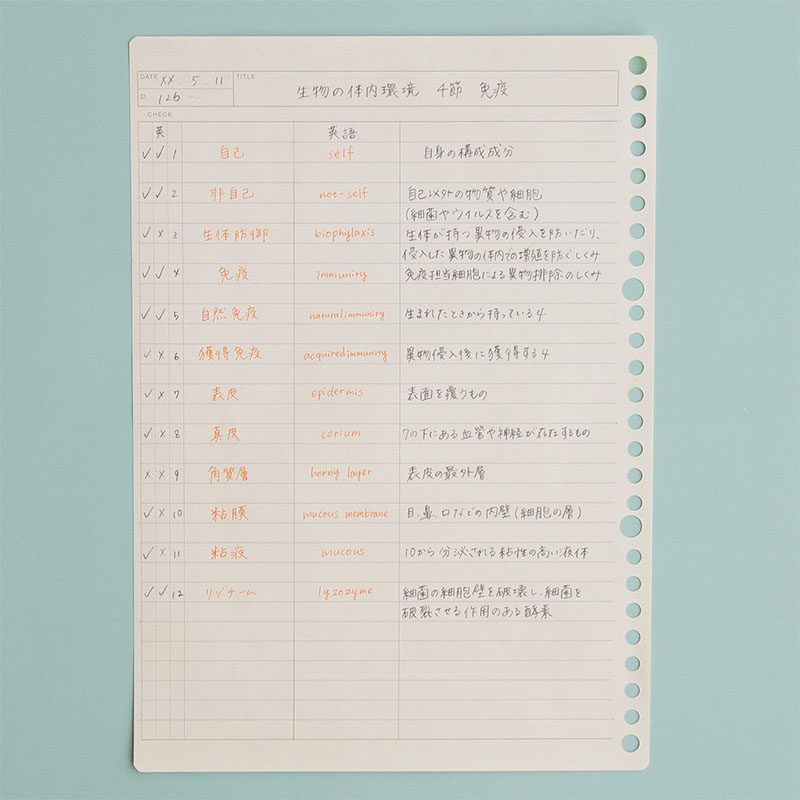 DATE XX . 5 . 11 TITLE
生物の体内環境 4節 免疫
P. 126 ~
CHECK
英 英語
✓ ✓ 1 自己 self 自身の構成成分
✓ ✓ 2 非自己 not-self 自己以外の物質や細胞
(細菌やウイルスを含む)
✓ x 3 生体防御 biophylaxis 生体が持つ異物の侵入を防いだり、
侵入した異物の体内での増殖を防ぐしくみ
✓ ✓ 4 免疫 immunity 免疫担当細胞による異物排除のしくみ
✓ ✓ 5 自然免疫 natural immunity 生まれたときから持っている4
✓ x 6 獲得免疫 acquired immunity 異物侵入後に獲得する4
✓ x 7 表皮 epidermis 表面を覆うもの
✓ x 8 真皮 corium 7の下にある血管や神経が存在するもの
x x 9 角質層 horny layer 表皮の最外層
✓ x 10 粘膜 mucous membrane 目、鼻、口などの内壁(細胞の層)
✓ x 11 粘液 mucous 10から分泌される粘性の高い液体
✓ ✓ 12 リゾチーム lyzozyme 細菌の細胞壁を破壊し、細菌を
破裂させる作用のある酵素